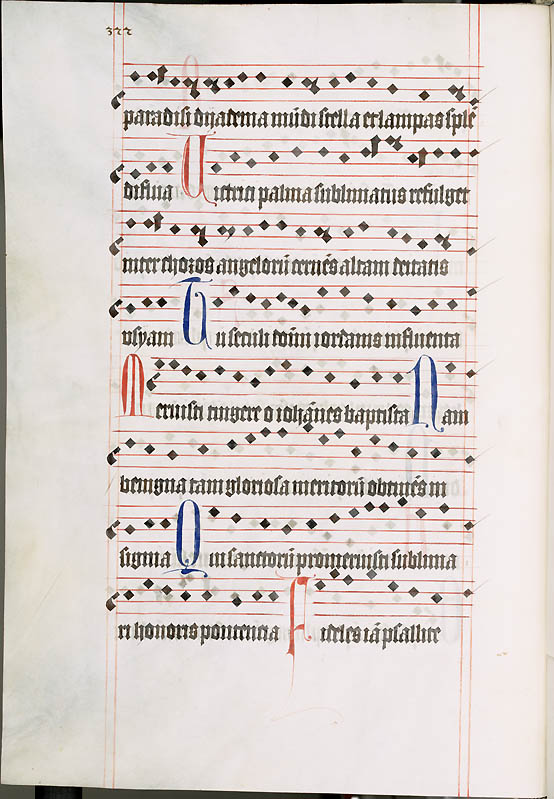 322
paradisi dyadema mūdi stella et lampas splē
diflua Uictrici palma sublimatus refulget
inter choros angelorū cernēs altam deitatis
vsyam Tu seculi doūm iordanis influenta
Meruisti tingere o iohānes baptista Nam
benigna tam gloriosa meritorū obtinēs in
signia Qui sanctorū promeruisti sublima
ri honoris potentia Fideles iā psallite